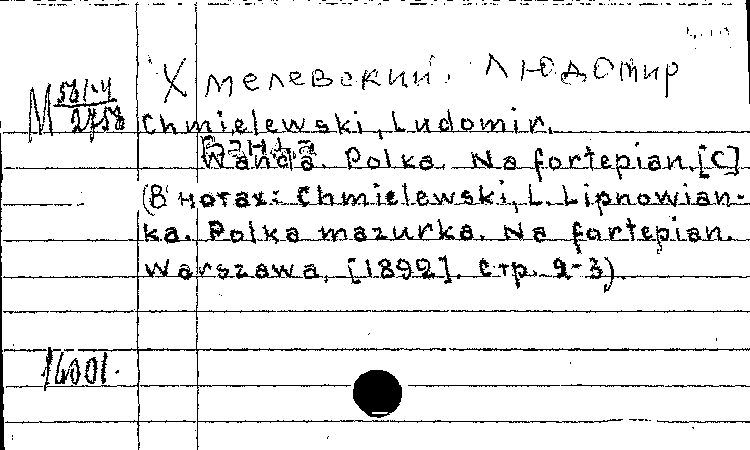 Хмелевский, Людомир
М 56/-4
2758
Chmielewski, Ludomir.
Ванда
Wanda. Polka. Na fortepian. [С]
(В нотах: Chmielewski, L. Lipnowian-
ka. Polka mazurka. Na fortepian.
Warszawa, [1892]. Стр. 2-3).
16001.